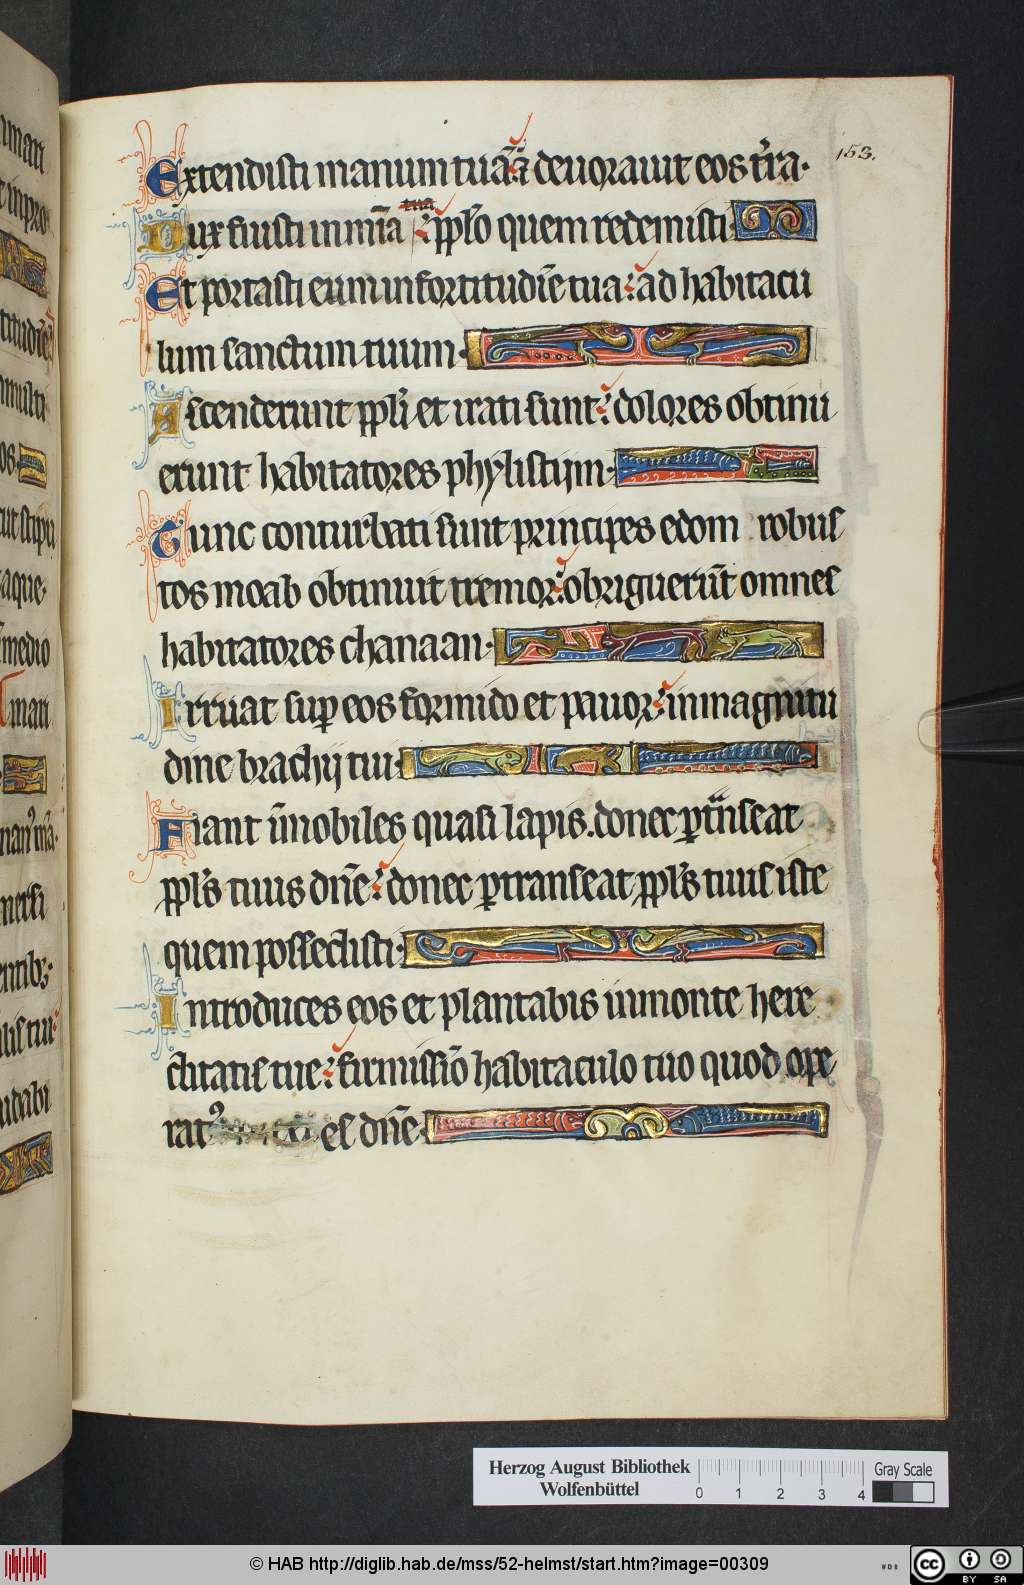 153.
Extendisti manum tuā ⁊ deuorauit eos t̄ra.
Dux fuisti in mīa tua pp̄lo quem redemisti
Et portasti eum in fortitudīe tua: ad habitacu
lum sanctum tuum.
Ascenderunt pp̄li et irati sunt: dolores obtinu
erunt habitatores phylistijm.
Tunc conturbati sunt principes edom robus
tos moab obtinuit tremor: obriguerūt omnes
habitatores chanaan.
Irruat suꝑ eos formido et pauor: in magnitu
dine brachij tui.
Fiant īmobiles quasi lapis. donec ꝑtrāseat
pp̄ls tuus dn̄e: donec ꝑtranseat pp̄ls tuus iste
quem possedisti.
Introduces eos et plantabis in monte here
ditatis tue: firmissīo habitaculo tuo quod ope
ratꝰ es dn̄e.
Herzog August Bibliothek
Wolfenbüttel
0 1 2 3 4
Gray Scale
© HAB http://diglib.hab.de/mss/52-helmst/start.htm?image=00309
WDB
cc BY SA